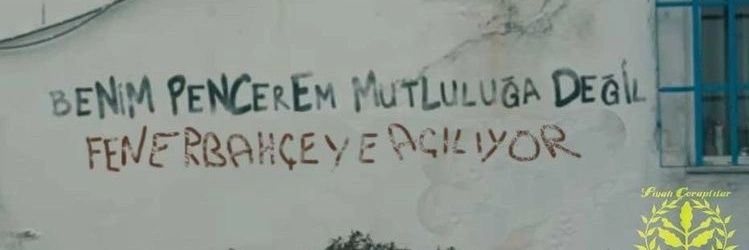 BENİM PENCEREM MUTLULUĞA DEĞİL
FENERBAHÇEYE AÇILIYOR
Siyah Çoraplılar